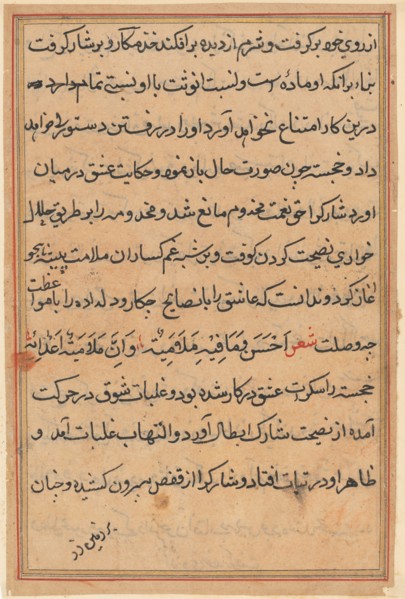 از روی خود بر گرفت و شرم از دیده بر افکند خنده مکار و بر شارک گرفت
بناء برانکه او مادهٔ است و نسبت انوثت با او نسبتی تمام دارد
درین کار امتناع نخواهد آورد او را در رفتن دستوری خواهد
داد و خجسته چون صورت حال باز نمود و حکایت عشق در میان
اورد شارک را حق نعمت مخدوم مانع شد و مر او را بر طریق حلال
خواری نصیحت کردن گرفت و بر شبه غم کساران ملامت
آغاز کرد و ندانست که عاشق را با نصایح چکار و دلداده را با مواعظت
چه وصلت شعر ملامتیه وان ملامتیه
خجسته را سکرت عشق در کار شده بود و غلبات شوق در حرکت
آمده از نصیحت شارک ابطال آورد و التهاب غلبات آمد و
ظاهر او در تبات افتاد و شارک را از قفص بیرون کشیده و چنان
بر زمین زد